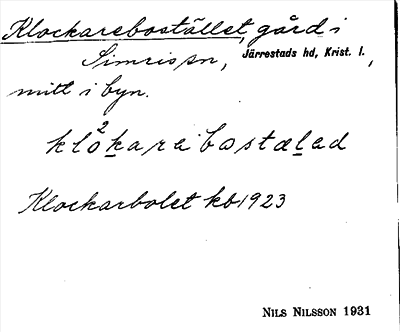 Klockarebostället, gård i
Simris sn, Järrestads hd, Krist. l.,
mitt i byn.
klo²kara bostælad
Klockarbolet kb 1923
NILS NILSSON 1931